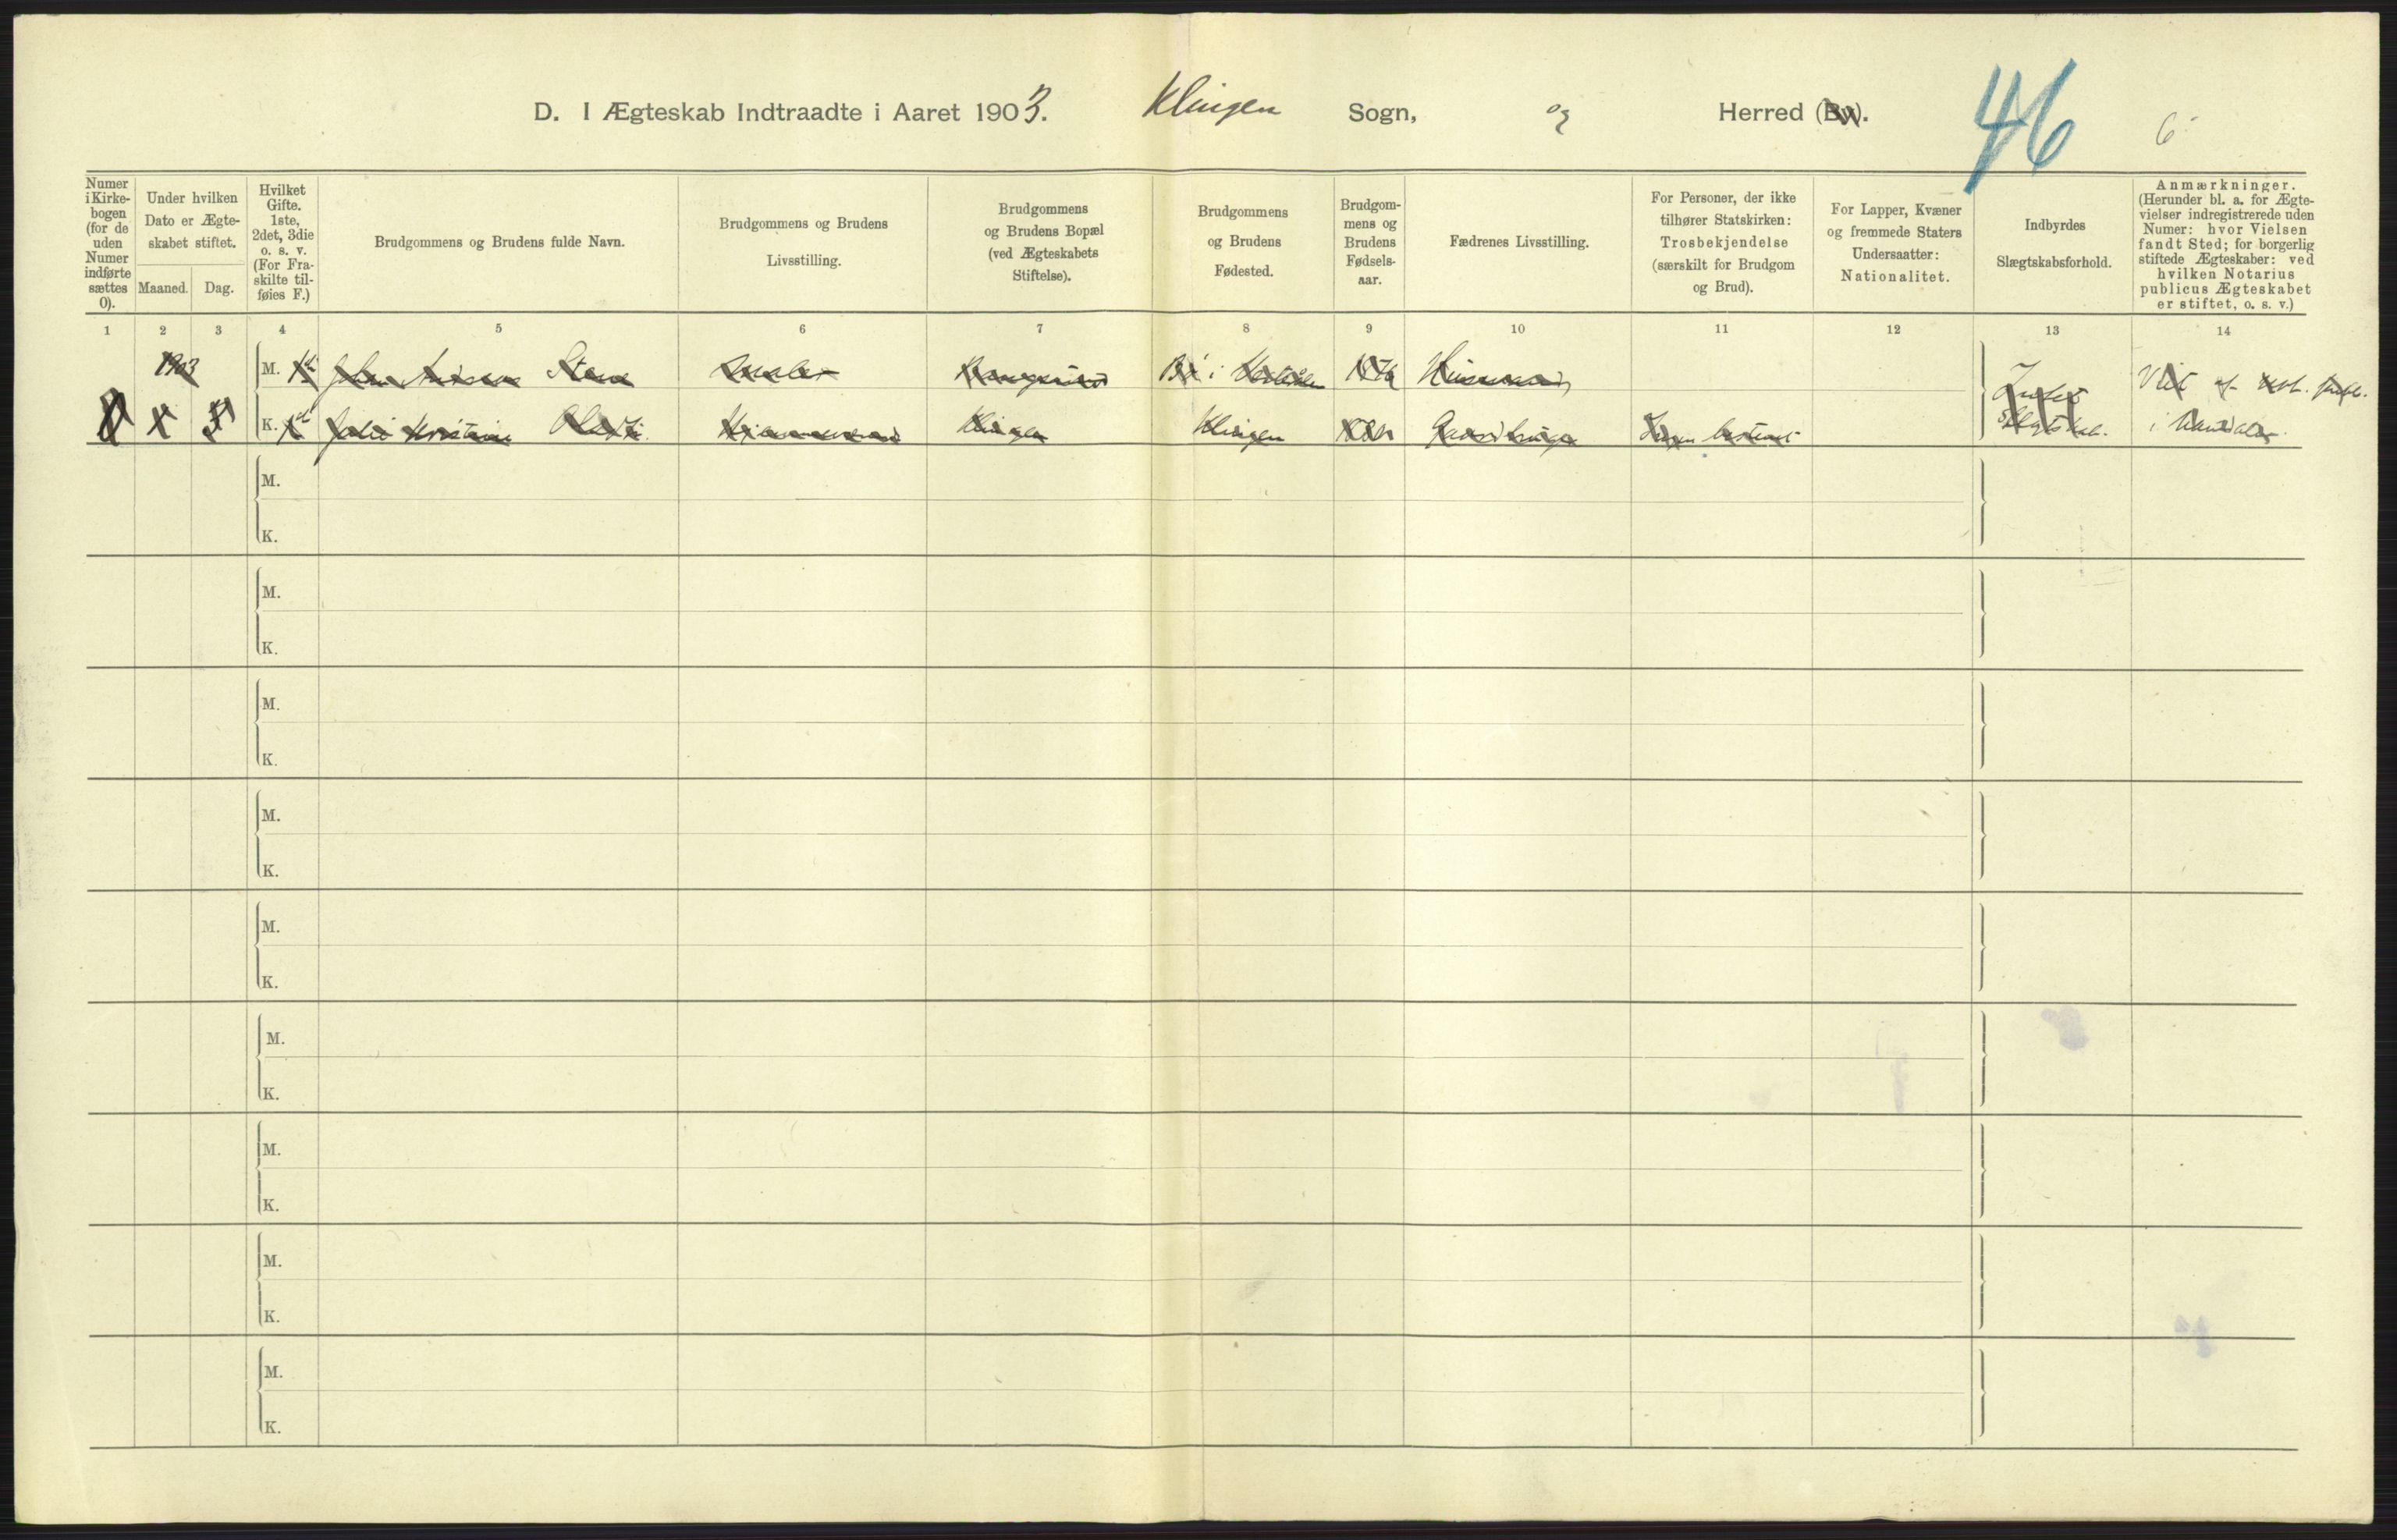 D. I Ægteskab Indtraadte i Aaret 1903. Klingen Sogn, og Herred (By).
46
6
Numer i Kirke-bogen (for de uden Numer indførte sættes 0).
Under hvilken Dato er Ægte-skabet stiftet.
Maaned. Dag.
Hvilket Gifte. 1ste, 2det, 3die o. s. v. (For Fra-skilte til-føies F.)
Brudgommens og Brudens fulde Navn.
Brudgommens og Brudens Livsstilling.
Brudgommens og Brudens Bopæl (ved Ægteskabets Stiftelse).
Brudgommens og Brudens Fødested.
Brudgom-mens og Brudens Fødsels-aar.
Fædrenes Livsstilling.
For Personer, der ikke tilhører Statskirken: Trosbekjendelse (særskilt for Brudgom og Brud).
For Lapper, Kvæner og fremmede Staters Undersaatter: Nationalitet.
Indbyrdes Slægtskabsforhold.
Anmærkninger. (Herunder bl. a. for Ægte-vielser indregistrerede uden Numer: hvor Vielsen fandt Sted; for borgerlig stiftede Ægteskaber: ved hvilken Notarius publicus Ægteskabet er stiftet, o. s. v.)
1 2 3 4 5 6 7 8 9 10 11 12 13 14
1903 M. Husmand
K. Klingen Klingen Gaardbruger
Intet
Slægtskab.
M.
K.
M.
K.
M.
K.
M.
K.
M.
K.
M.
K.
M.
K.
M.
K.
M.
K.